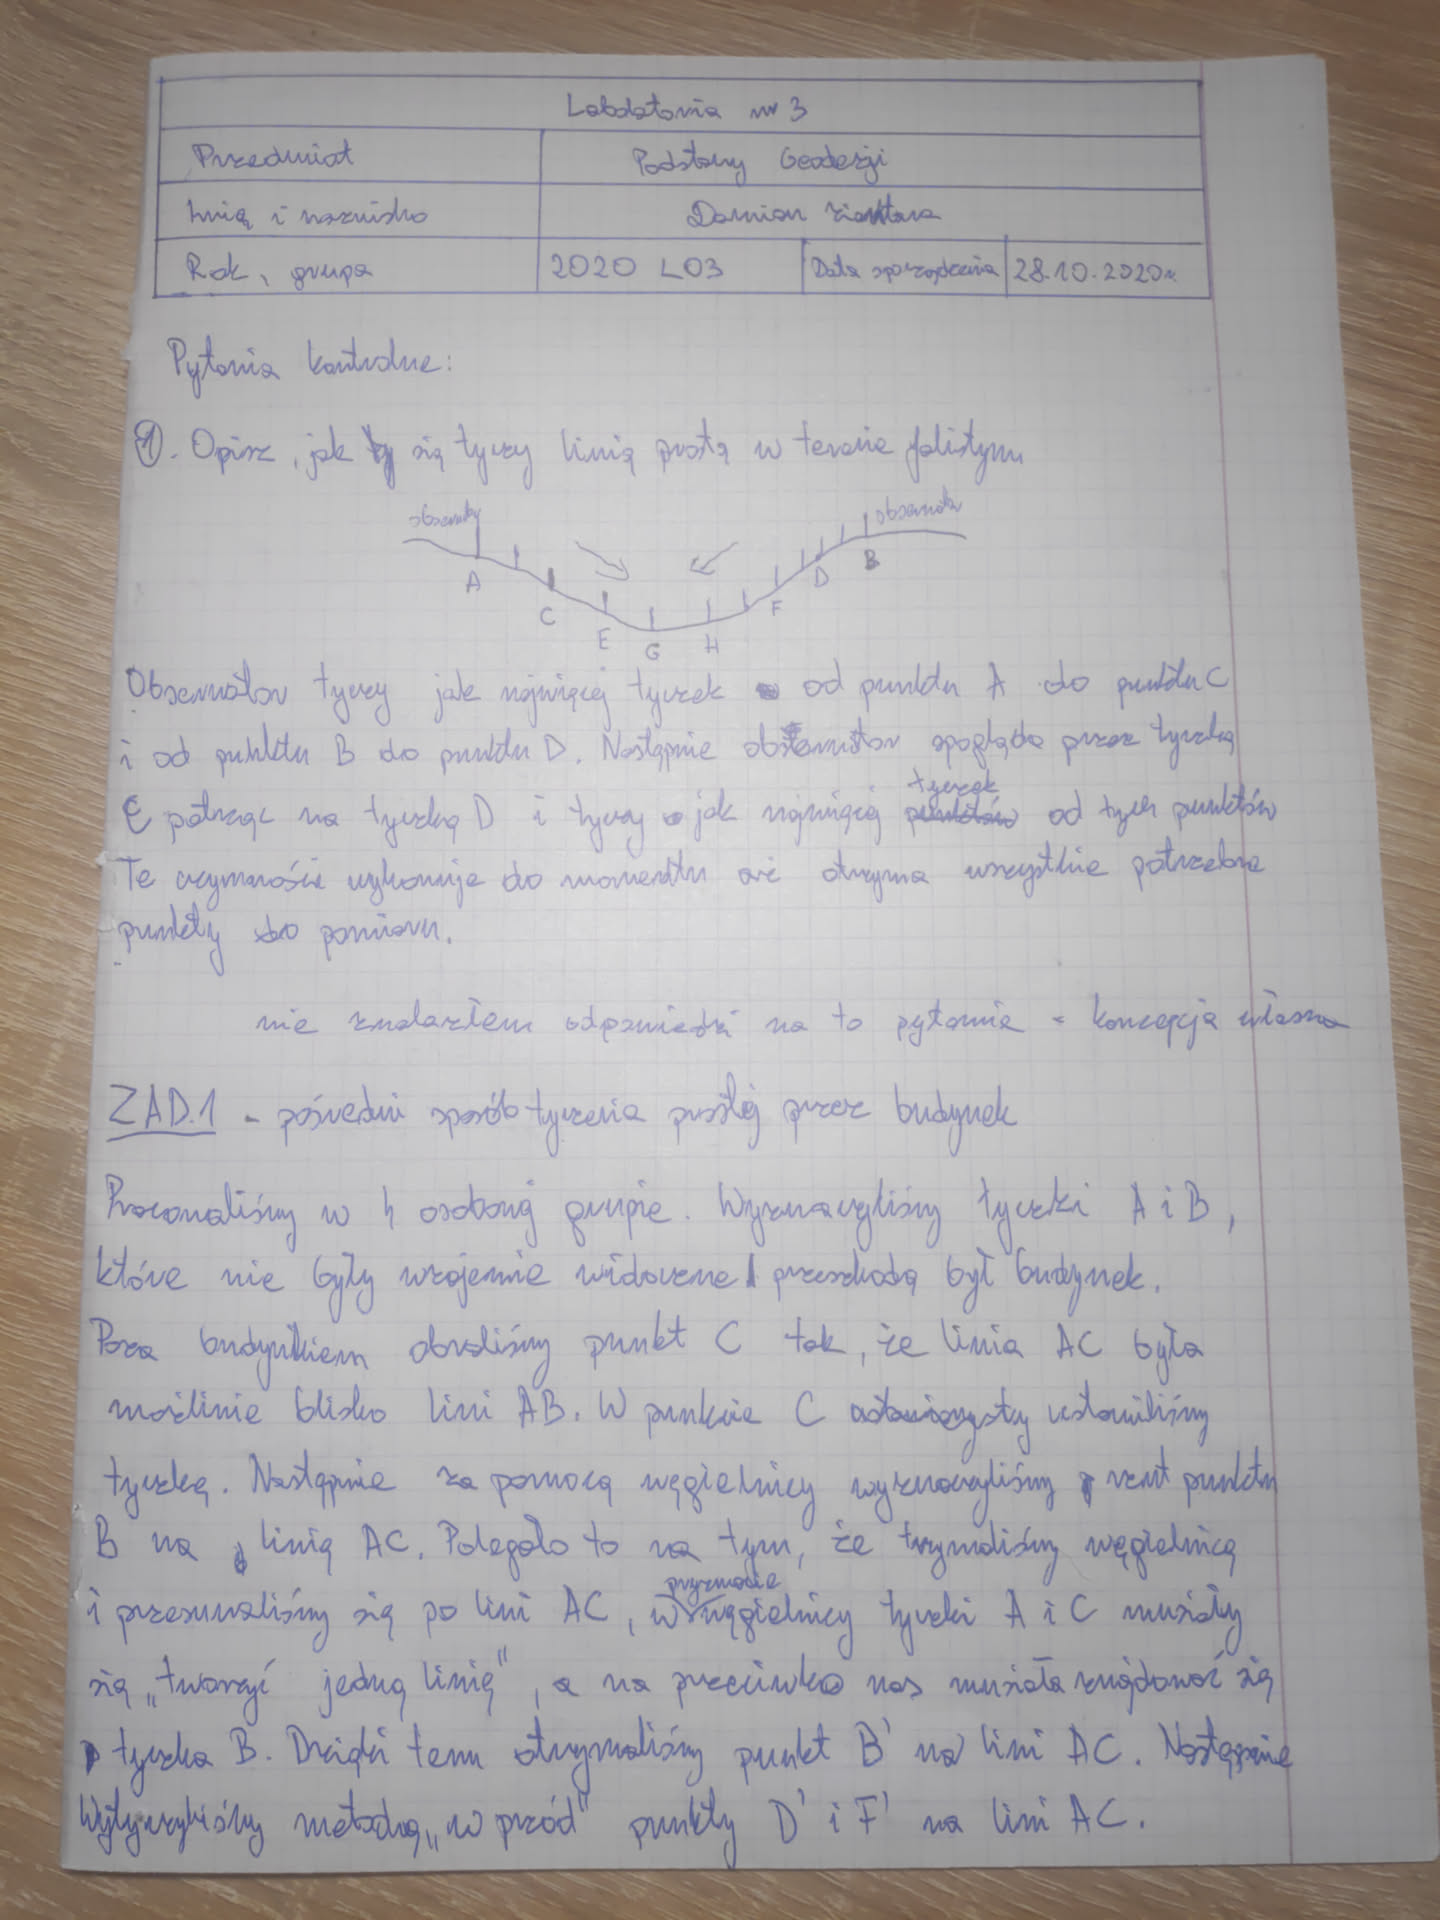 Laboratoria nr 3
Przedmiot Podstawy Geodezji
Imię i nazwisko Damian
Rok, grupa 2020 L03 Data sporządzenia 28.10.2020r.
Pytania kontrolne:
1. Opisz, jak się tyczy linię prostą w terenie falistym
obserwator obserwator
A C E G H F D B
Obserwator tyczy jak najwięcej tyczek od punktu A do punktu C
i od punktu B do punktu D. Następnie obserwator spogląda przez tyczkę
C patrząc na tyczkę D i tyczy jak najwięcej tyczek od tych punktów
Te czynności wykonuje do momentu aż otrzyma wszystkie potrzebne
punkty do pomiaru.
nie znalazłem odpowiedzi na to pytanie - koncepcja własna
ZAD.1 - pośredni sposób tyczenia prostej przez budynek
Pracowaliśmy w 4 osobowej grupie. Wyznaczyliśmy tyczki A i B,
które nie były wzajemnie widoczne, przeszkodą był budynek.
Poza budynkiem obraliśmy punkt C tak, że linia AC była
możliwie blisko lini AB. W punkcie C ustawiliśmy
tyczkę. Następnie za pomocą węgielnicy wyznaczyliśmy rzut punktu
B na linię AC. Polegało to na tym, że trzymaliśmy węgielnicę
i przesuwaliśmy się po lini AC, w pryzmacie węgielnicy tyczki A i C musiały
się „tworzyć jedną linię", a na przeciwko nas musiała znajdować się
tyczka B. Dzięki temu otrzymaliśmy punkt B' na lini AC. Następnie
Wytyczyliśmy metodą „w przód" punkty D' i F' na lini AC.